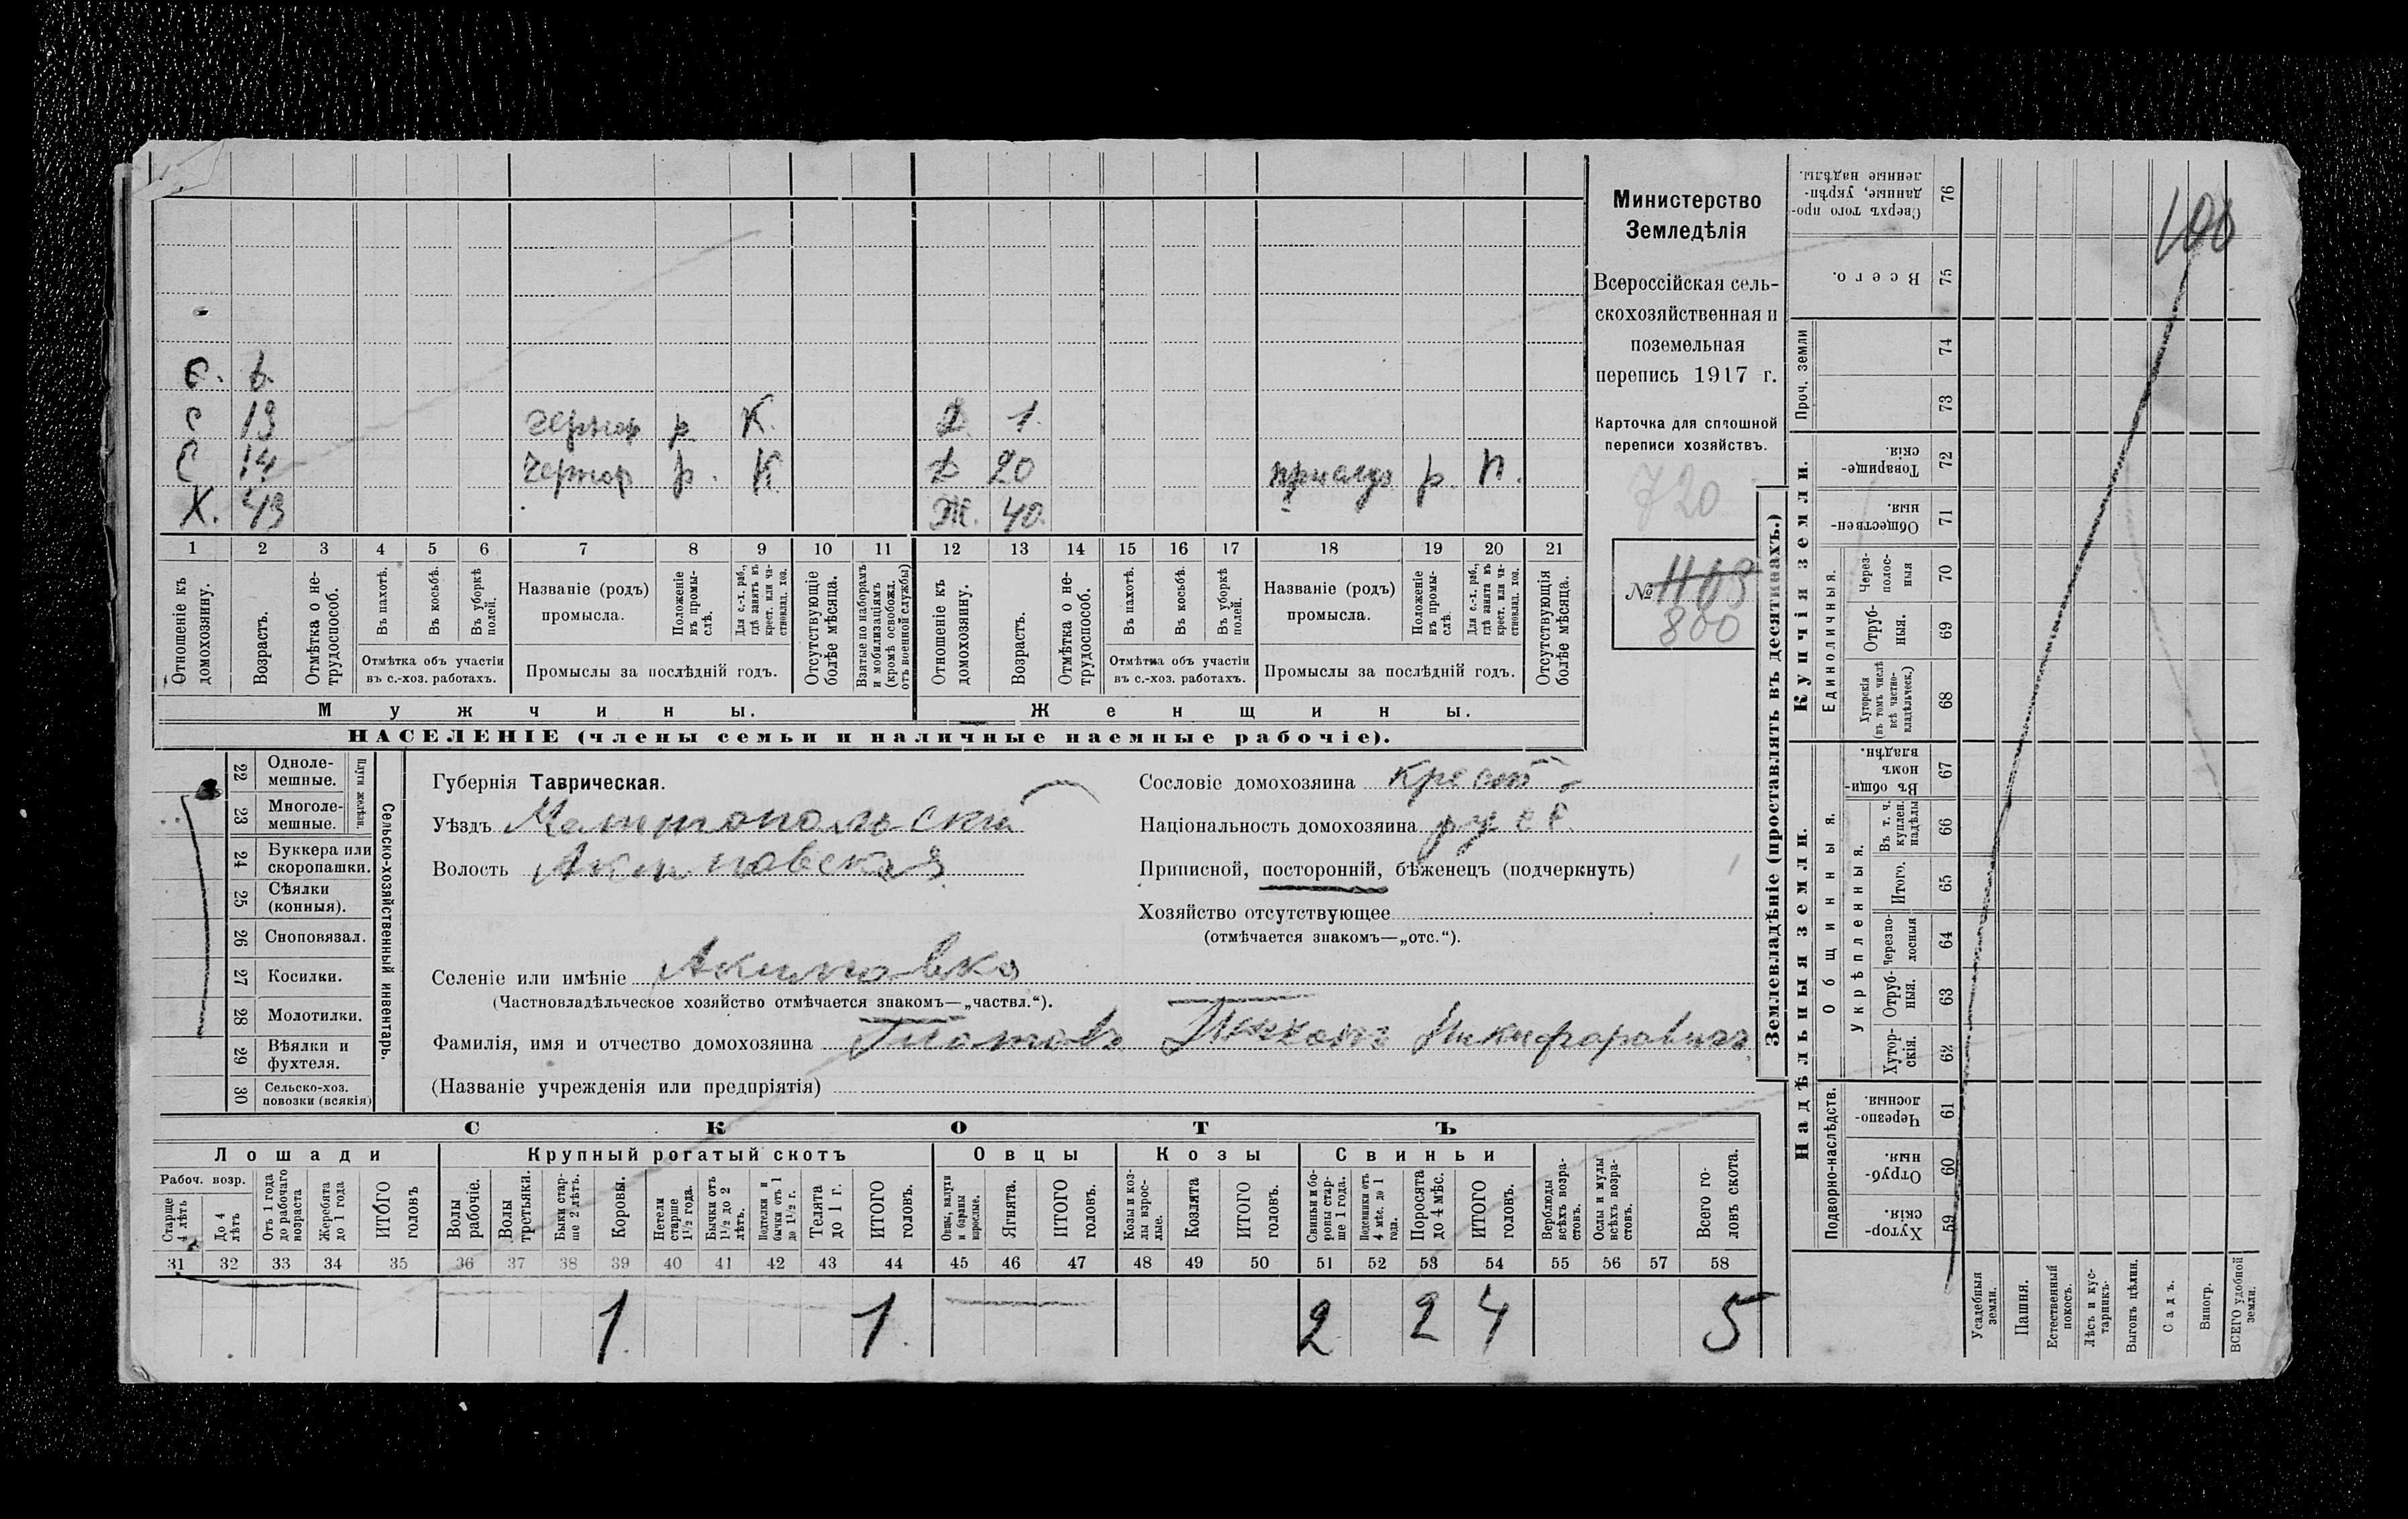 Министерство
Земледѣлія
Всероссійская сель-
скохозяйственная и
поземельная
перепись 1917 г.
Карточка для сплошной
переписи хозяйствъ.
720
№ 1103
800
С. 6.
С 13 р К. Д. 1.
С 14 р. К Д 20 р П.
Х. 43 Ж. 40.
1 2 3 4 5 6 7 8 9 10 11 12 13 14 15 16 17 18 19 20 21
Отношеніе къ домохозяину.
Возрастъ.
Отмѣтка о не-трудоспособ.
Въ пахотѣ.
Въ косьбѣ.
Въ уборкѣ полей.
Отмѣтка объ участіи
въ с.-хоз. работахъ.
Названіе (родъ)
промысла.
Положеніе въ промы-слѣ.
Для с.-х. раб., гдѣ занятъ въ крест. или ча-стновлад. хоз.
Промыслы за послѣдній годъ.
Отсутствующіе болѣе мѣсяца.
Взятые по наборамъ и мобилизаціямъ (кромѣ освобожд. отъ военной службы)
Отношеніе къ домохозяину.
Возрастъ.
Отмѣтка о не-трудоспособ.
Въ пахотѣ.
Въ косьбѣ.
Въ уборкѣ полей.
Отмѣтка объ участіи
въ с.-хоз. работахъ.
Названіе (родъ)
промысла.
Положеніе въ промы-слѣ.
Для с.-х. раб., гдѣ занята въ крест. или ча-стновлад. хоз.
Промыслы за послѣдній годъ.
Отсутствующія болѣе мѣсяца.
Мужчины. Женщины.
НАСЕЛЕНІЕ (члены семьи и наличные наемные рабочіе).
22 Одноле-мешные.
23 Многоле-мешные.
Плуги желѣзн.
24 Буккера или скоропашки.
25 Сѣялки (конныя).
26 Сноповязал.
27 Косилки.
28 Молотилки.
29 Вѣялки и фухтеля.
30 Сельско-хоз. повозки (всякія)
Сельско-хозяйственный инвентарь.
Губернія Таврическая.
Уѣздъ Мелитопольскій
Волость Акимовская
Сословіе домохозяина крест.
Національность домохозяина русс.
Приписной, посторонній, бѣженецъ (подчеркнуть)
Хозяйство отсутствующее
(отмѣчается знакомъ—„отс.“).
Селеніе или имѣніе Акимовка
(Частновладѣльческое хозяйство отмѣчается знакомъ—„частвл.“).
Фамилія, имя и отчество домохозяина Никифаравичъ
(Названіе учрежденія или предпріятія)
СКОТЪ
Лошади Крупный рогатый скотъ Овцы Козы Свиньи
Рабоч. возр.
Старше 4 лѣтъ
До 4 лѣтъ
Отъ 1 года до рабочаго возраста
Жеребята до 1 года
ИТОГО головъ
Волы рабочіе.
Волы третьяки.
Быки стар-ше 2 лѣтъ.
Коровы.
Нетели старше 1½ года.
Бычки отъ 1½ до 2 лѣтъ.
Подтелки и бычки отъ 1 до 1½ г.
Телята до 1 г.
ИТОГО головъ.
Овцы, валухи и бараны взрослые.
Ягнята.
ИТОГО головъ.
Козы и коз-лы взрос-лые.
Козлята
ИТОГО головъ.
Свиньи и бо-ровы стар-ше 1 года.
Подсвинки отъ 4 мѣс. до 1 года.
Поросята до 4 мѣс.
ИТОГО головъ.
Верблюды всѣхъ возра-стовъ.
Ослы и мулы всѣхъ возра-стовъ.
Всего го-ловъ скота.
31 32 33 34 35 36 37 38 39 40 41 42 43 44 45 46 47 48 49 50 51 52 53 54 55 56 57 58
1 1. 2 2 4 5
Землевладѣніе (проставлять въ десятинахъ.)
Купчія земли.
Надѣльныя земли.
Сверхъ того про-данные, укрѣп-ленные надѣлы. 76
100
Всего. 75
Проч. земли 74
73
Товарище-скія. 72
Обществен-ныя. 71
Единоличныя.
Через-полос-ныя 70
Отруб-ныя. 69
Хуторскія (въ томъ числѣ всѣ частно-владѣльческ.) 68
Общинныя.
Въ общи-номъ владѣн. 67
Укрѣпленныя.
Въ т. ч. куплен. надѣлы 66
Итого. 65
Черезпо-лосныя 64
Отруб-ныя. 63
Хутор-скія. 62
Подворно-наслѣдств.
Черезпо-лосныя. 61
Отруб-ныя. 60
Хутор-скія. 59
Усадебныя земли.
Пашня.
Естественный покосъ.
Лѣсъ и кус-тарникъ.
Выгонъ цѣлин.
Садъ.
Виногр.
ВСЕГО удобной земли.